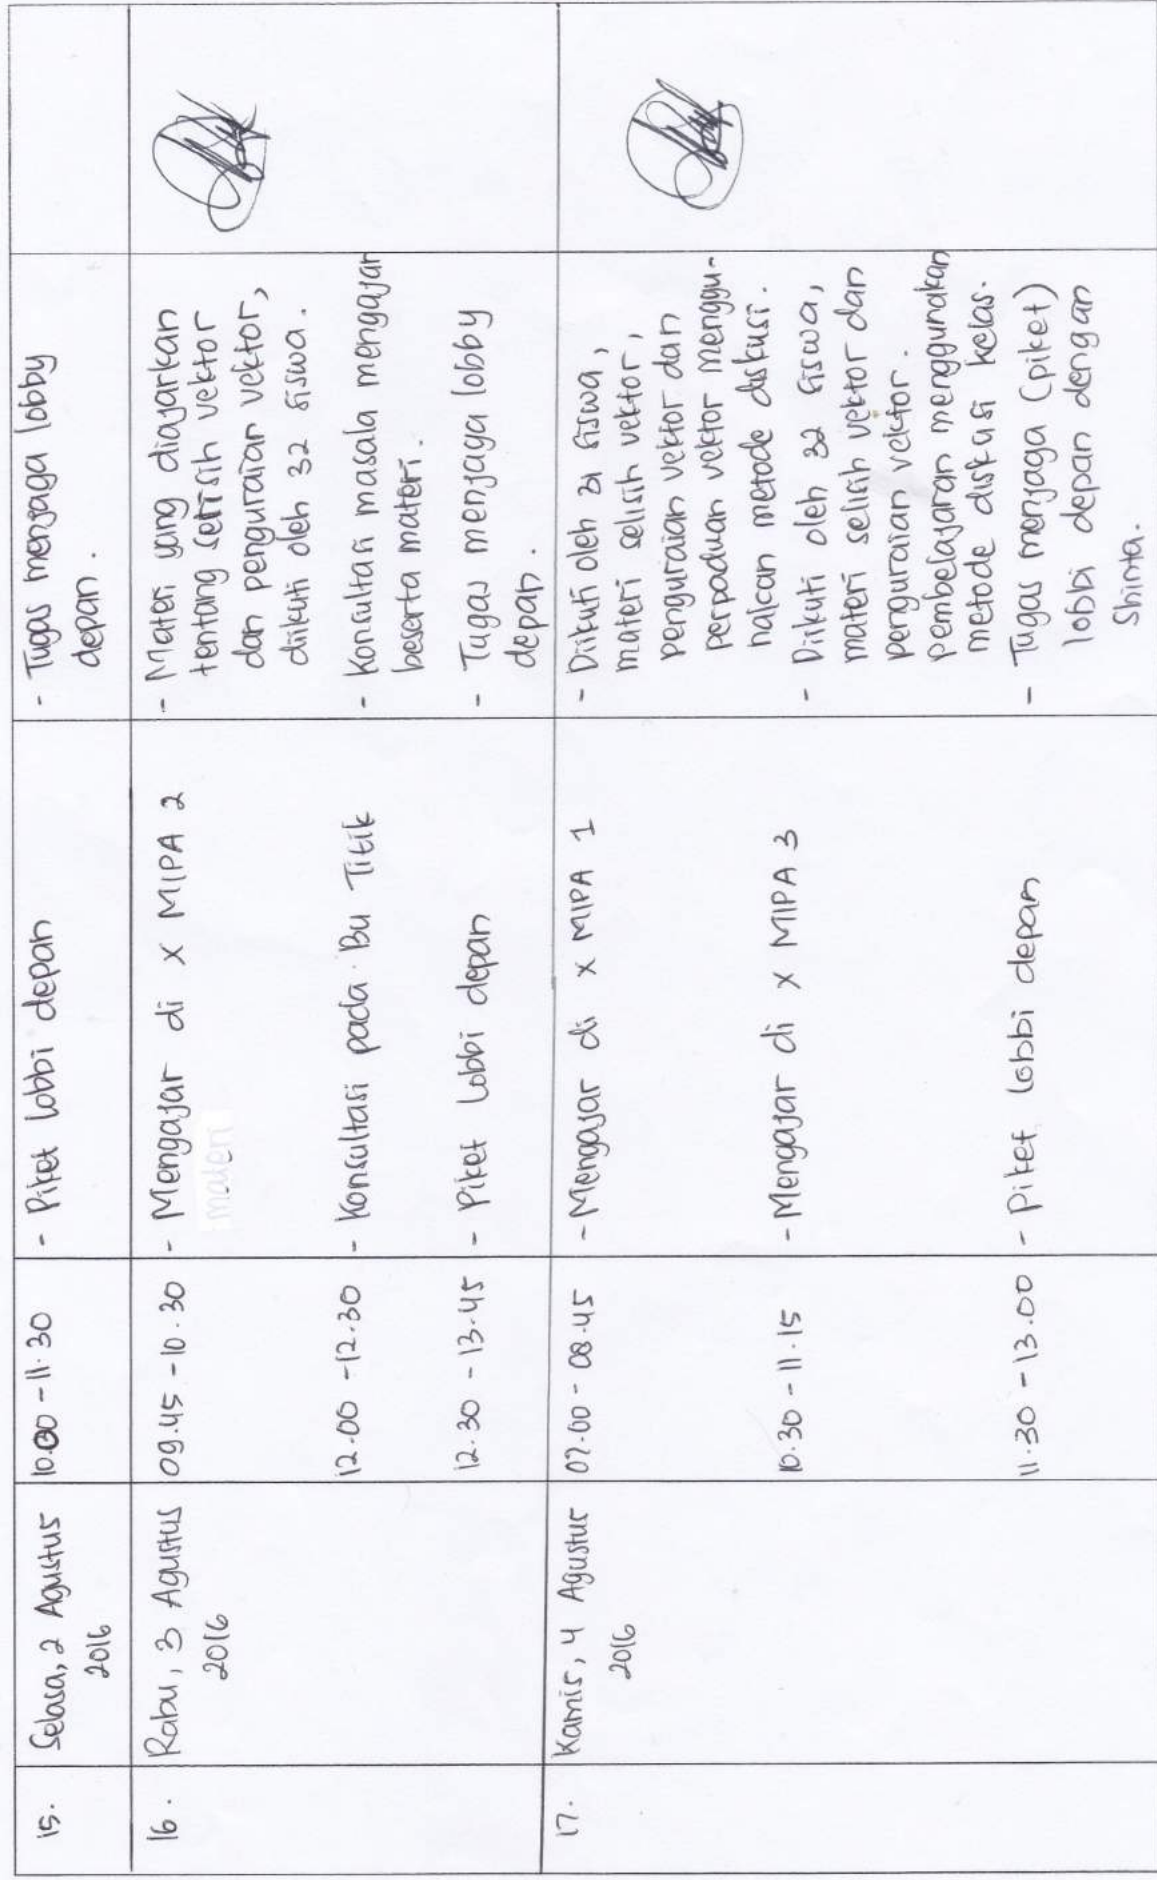 15.
Selasa, 2 Agustus
2016
10.00 - 11.30
- Piket lobbi depan
- Tugas menjaga lobby
depan.
16.
Rabu, 3 Agustus
2016
09.45 - 10.30
- Mengajar di X MIPA 2
materi
- Materi yang diajarkan
tentang selisih vektor
dan penguraian vektor,
diikuti oleh 32 siswa.
12.00 - 12.30
- Konsultasi pada Bu Titik
- Konsultasi masala mengajar
beserta materi.
12.30 - 13.45
- Piket Lobbi depan
- Tugas menjaga lobby
depan.
17.
Kamis, 4 Agustus
2016
07.00 - 08.45
- Mengajar di X MIPA 1
- Diikuti oleh 31 siswa,
materi selisih vektor,
penguraian vektor dan
perpaduan vektor menggu-
nakan metode diskusi.
10.30 - 11.15
- Mengajar di X MIPA 3
- Diikuti oleh 32 siswa,
materi selisih vektor dan
penguraian vektor.
pembelajaran menggunakan
metode diskusi kelas.
11.30 - 13.00
- Piket lobbi depan
- Tugas menjaga (piket)
lobbi depan dengan
Shinta.